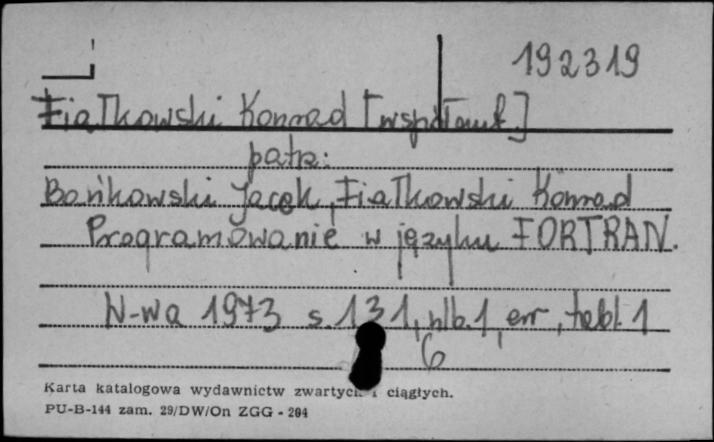 192319
Fiałkowski Konrad [współaut.]
patrz:
Bańkowski Jacek, Fiałkowski Konrad
Programowanie w języku FORTRAN.
W-wa 1973 s. 131, nlb. 1, err, tabl. 1
6
Karta katalogowa wydawnictw zwartych i ciągłych.
PU-B-144 zam. 29/DW/On ZGG - 294